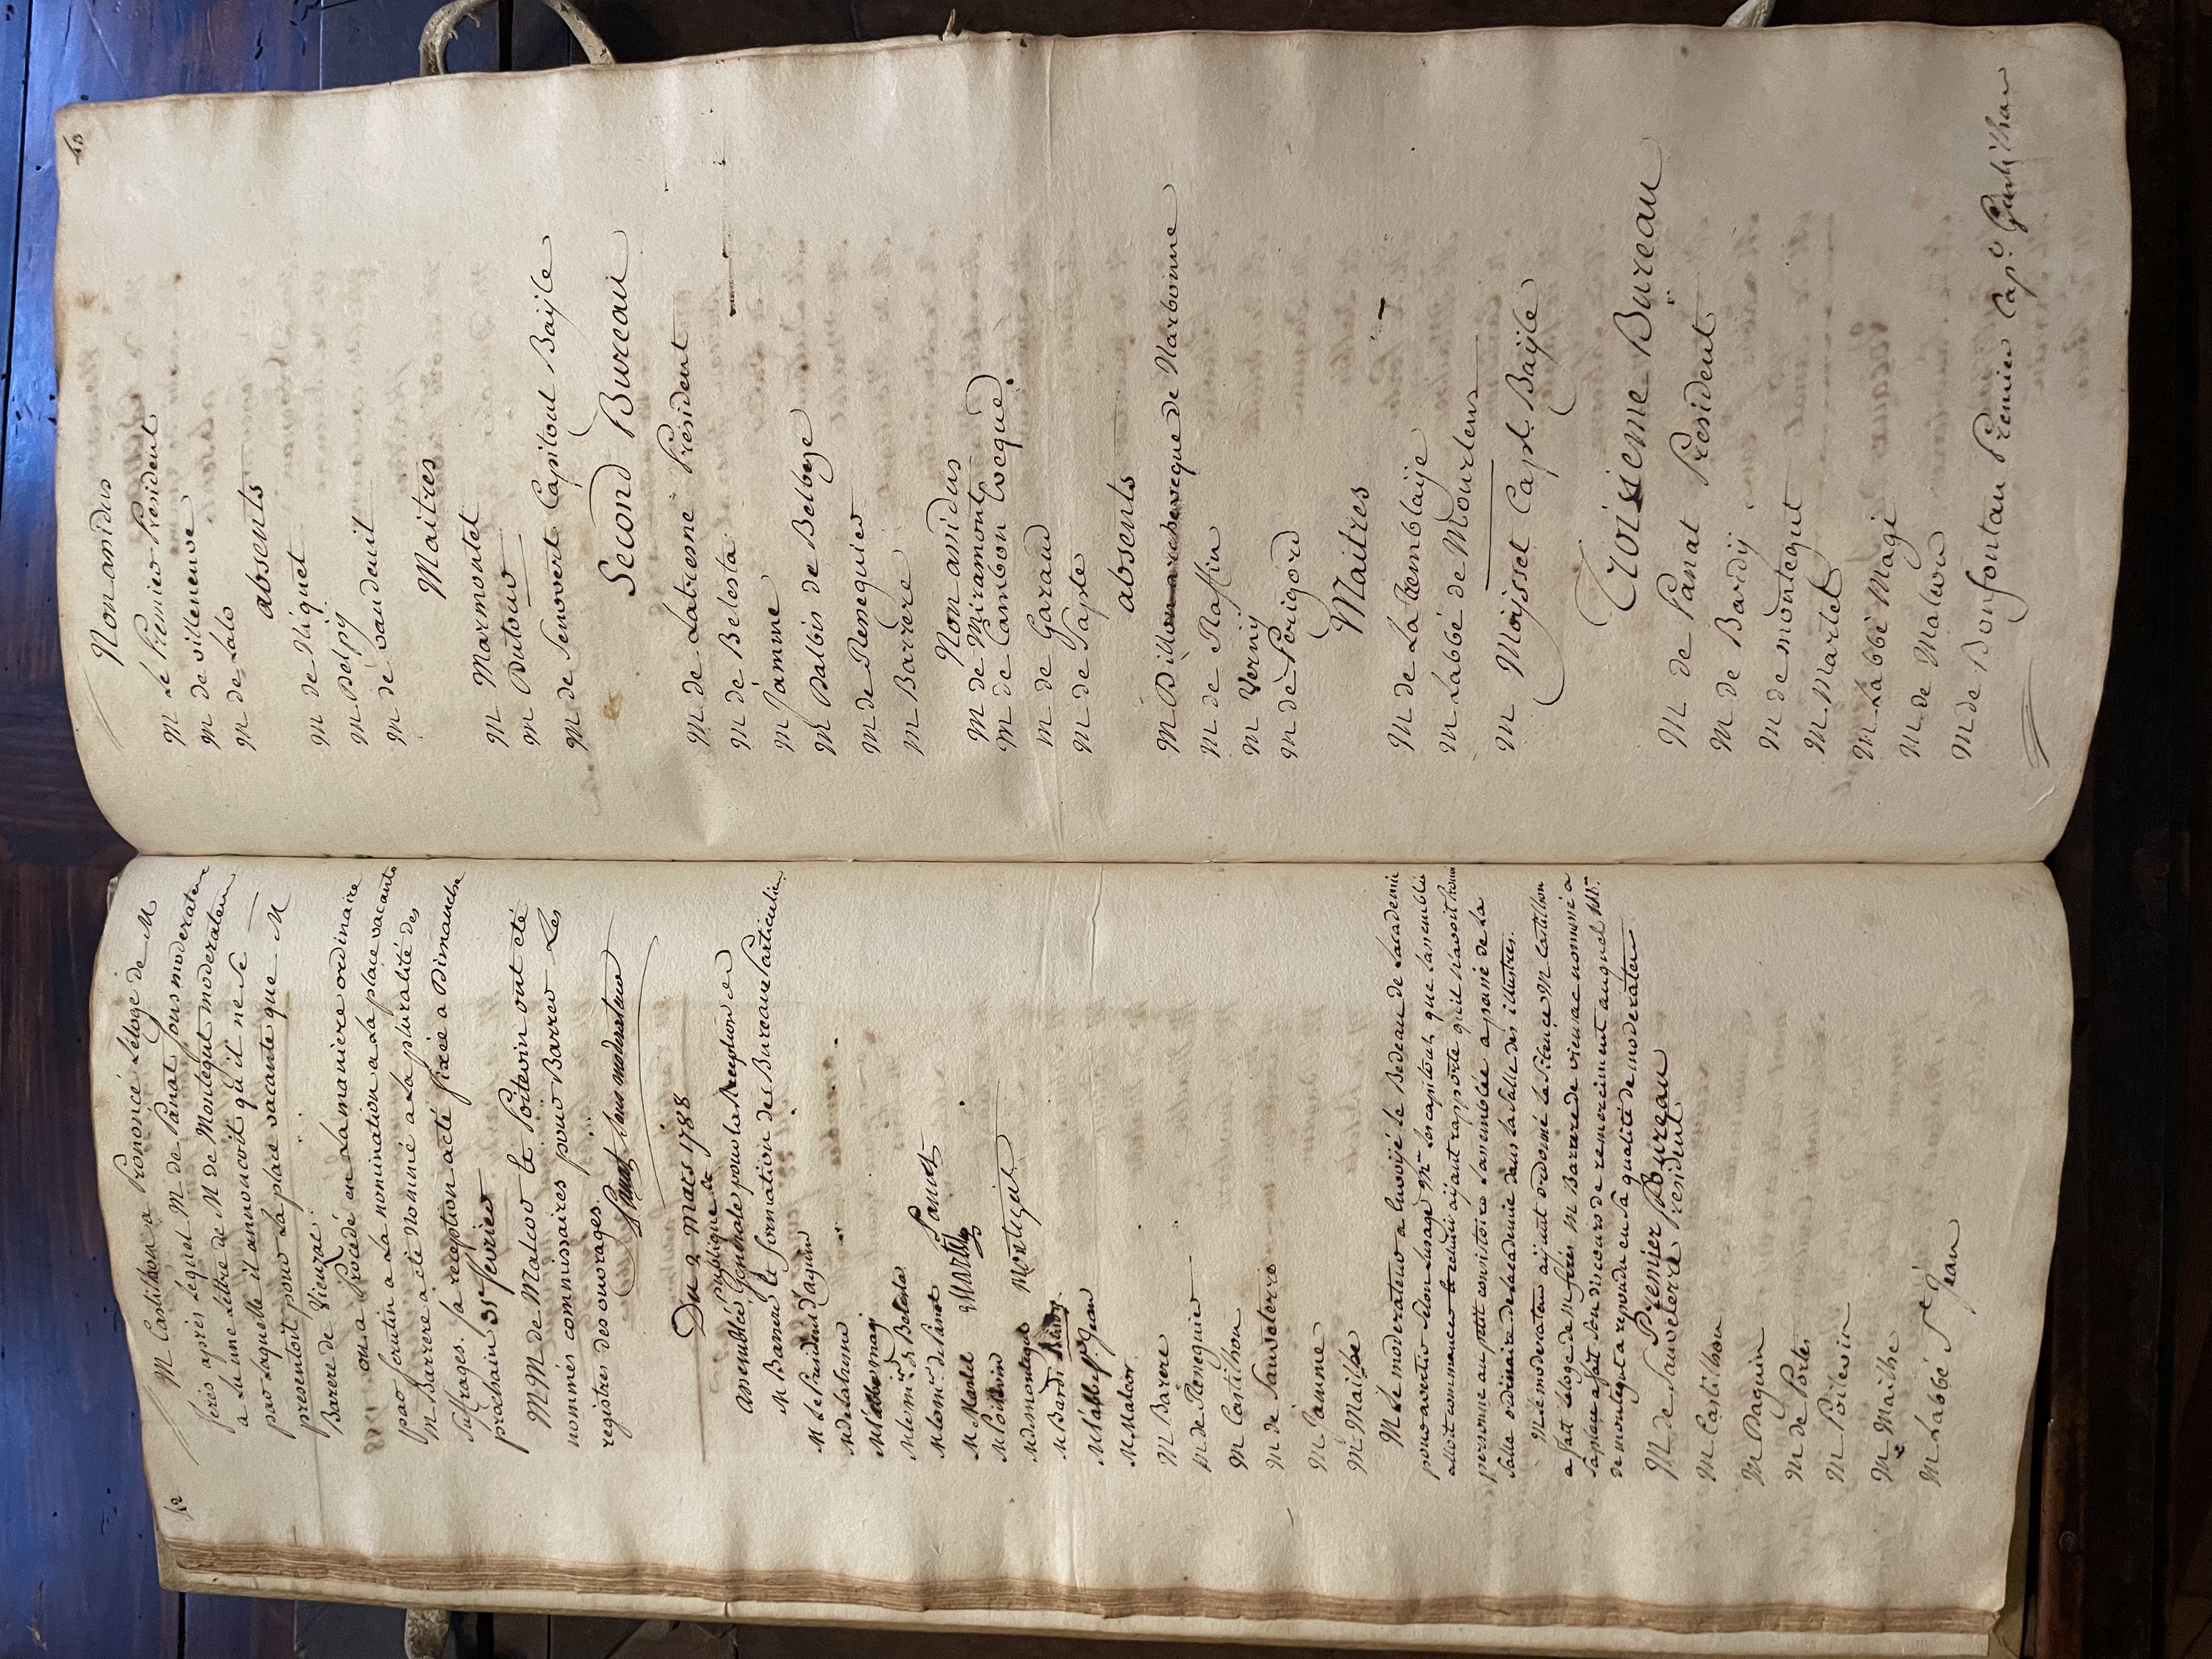 42
M Castilhon a Prononcé L'éloge de M
feres après lequel M de Panat sousmoderateur
a lu une lettre de M de Montegut moderateur
par laquelle il annoncoit qu'il ne se
presentoit pour la place vacante que M
Barere de Vieuzac.
on a Procédé en La maniere ordinaire
par scrutin a La nomination a La place vacante
M Barrere a été Nommé a La pluralité des
suffrages. sa reception a été fixée a Dimanche
prochain
MM de Malcor le Poitevin ont été
nommés commissaires pour Barrer Les
registres des ouvrages.
Panat sous moderateur
Du 2 mars 1788
assemblée Generale publique pour la Reception de
M Barrere & formation des Bureaux Particuliers
M le President d'aguin
M delatresne
M l'abbé magi
M lem.is de Belesta
M lem.is de Panat Panat
M Martel Martel
M Poitevin
M de montegut Montegut
M Bardi
M l'abbé St Jean
M Malcor
M Barere
M de Reneguier
M Castilhon
M de Sauveterre
M Jamme
M Mailhe
M Le moderateur a Envoyé le Bedeau de Lacademie
pour avertir selon lusage Mrs les capitouls que lassemblée
alloit commencer le Bedeau ayant rapporté qu'il n'avoit trouvé
personne au petit consistoire Lassemblée a passé de la
salle ordinaire de lacademie dans la salle des illustres.
M le moderateur ayant ordonné le silence M Castilhon
a fait léloge de M feres M Barrere de vieuzac nommé a
sa place a fait son discours de remerciment auquel Mr
de montegut a repondu en sa qualité de moderateur
Premier Bureau
M de Sauveterre President
M Castilhon
M Daguin
M de Portes
M Poitevin
M Mailhe
M Labbé St Jean
43
Non assidus
M Le Premier President
M de villeneuve
M de Lalo
absents
M de Niquet
M Delpy
M de vaudreuil
Maitres
M Marmontel
M Dutour
M de Senovert Capitoul Bayle
Second Bureau
M de Latresne President
M de Belesta
M Jamme
M Dalbis de Belbeze
M de Reneguier
M Barrere
Non assidus
M de Miramont
M de Cambon Evêque
M de Garaud
M de Sapte
absents
M Dillon archeveque de Narbonne
M de Raffin
M Verny
M de Perigord
Maitres
M de La Tremblaije
M Labbé de Mourlens
M Moysset Capl. Bayle
Troisieme Bureau
M de Panat President
M de Bardy
M de montegut
M Martel
M Labbé Magi
M de Malcor
M de Bonfontan Premier Cap.l Gentilhom